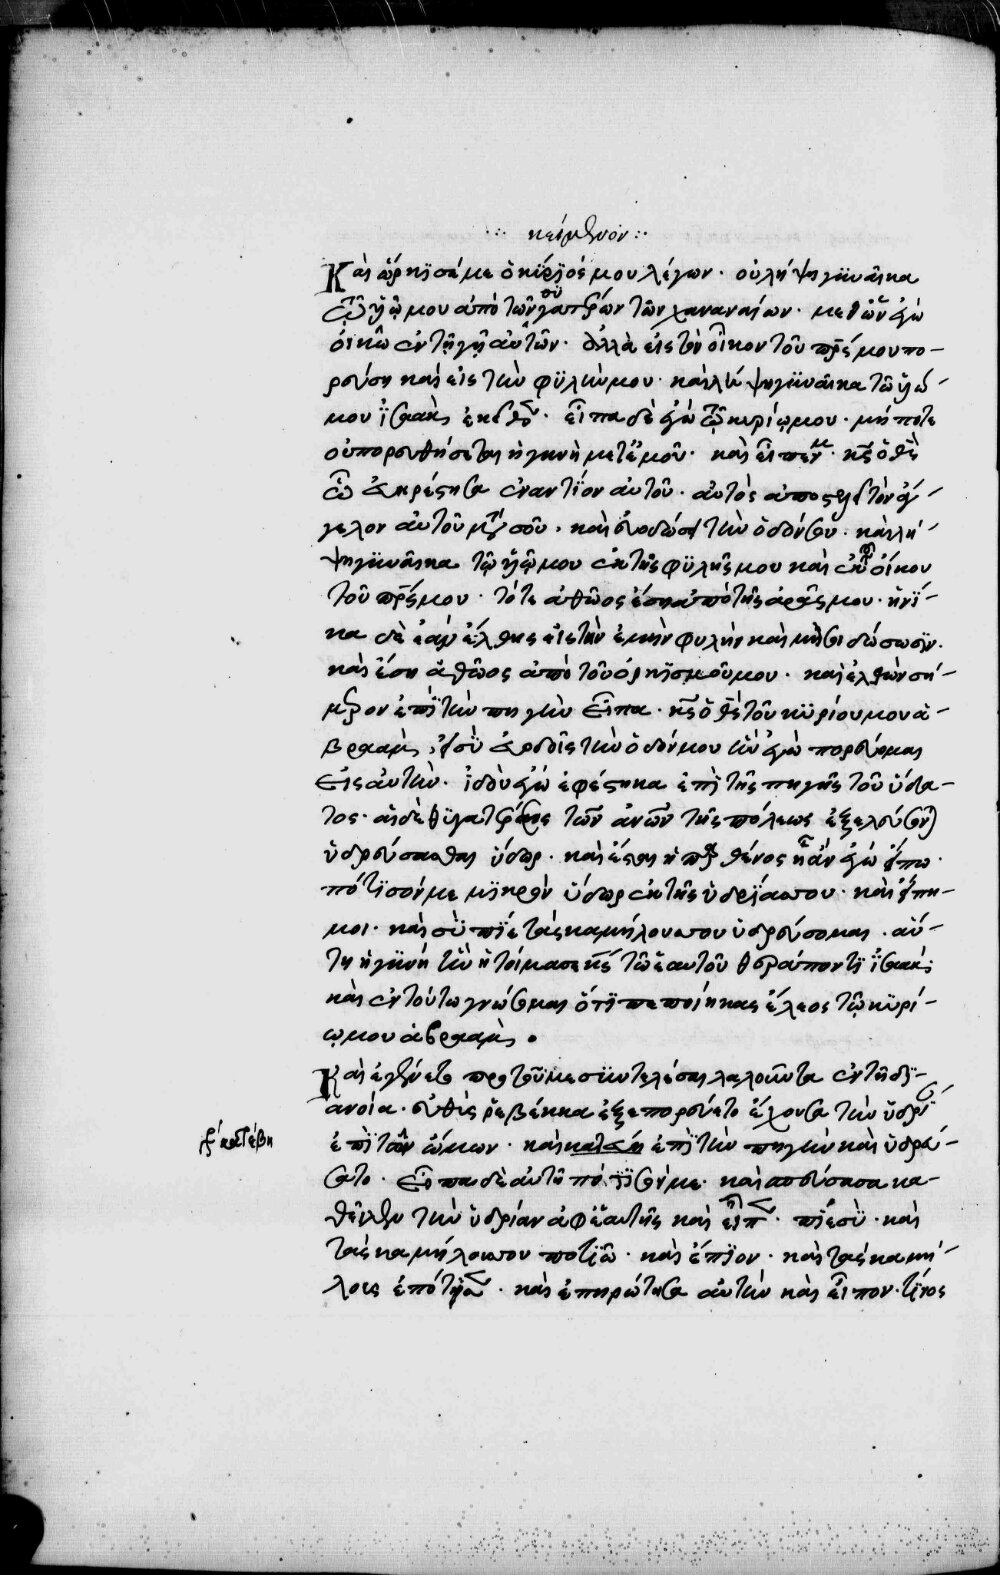 κείμενον
Καὶ ὥρκισέ με ὁ κύριός μου λέγων · οὐ λήψη γυναῖκα
τῷ υἱῷ μου ἀπὸ τῶν θυγατέρων τῶν χαναναίων · μεθ' ὧν ἐγὼ
οἰκῶ ἐν τῇ γῇ αὐτῶν · ἀλλὰ εἰς τὸν οἶκον τοῦ πρς μου πο-
ρεύση καὶ εἰς τὴν φυλήν μου · καὶ λήψη γυναῖκα τῷ υἱῷ
μου ἰσαὰκ ἐκεῖθεν · εἶπα δὲ ἐγὼ τῷ κυρίῳ μου · μήποτε
οὐ πορευθήσεται ἡ γυνὴ μετ' ἐμοῦ · καὶ εἶπεν μοι · κς ὁ θς
ᾧ εὐηρέστησα ἐναντίον αὐτοῦ · αὐτὸς ἀποστελεῖ τὸν ἄγ-
γελον αὐτοῦ μετὰ σοῦ · καὶ εὐοδώσει τὴν ὁδόν σου · καὶ λή-
ψη γυναῖκα τῷ υἱῷ μου ἐκ τῆς φυλῆς μου καὶ ἐκ τοῦ οἴκου
τοῦ πρς μου · τότε ἀθῶος ἔση ἀπὸ τῆς ἀρᾶς μου · ἡνί-
κα δὲ ἐὰν ἔλθης εἰς τὴν ἐμὴν φυλὴν καὶ μή σοι δώσωσιν ·
καὶ ἔση ἀθῶος ἀπὸ τοῦ ὁρκισμοῦ μου · καὶ ἐλθὼν σή-
μερον ἐπὶ τὴν πηγὴν εἶπα · κς ὁ θς τοῦ κυρίου μου ἀ-
βραάμ, εἰ σὺ εὐοδοῖς τὴν ὁδόν μου ἣν ἐγὼ πορεύομαι
εἰς αὐτήν · ἰδοὺ ἐγὼ ἐφέστηκα ἐπὶ τῆς πηγῆς τοῦ ὕδα-
τος · αἱ δὲ θυγατέρες τῶν ἀνων τῆς πόλεως ἐξελεύσονται
ὑδρεύσασθαι ὕδωρ · καὶ ἔσται ἡ παρθένος ᾗ ἂν ἐγὼ εἴπω ·
πότισόν με μικρὸν ὕδωρ ἐκ τῆς ὑδρίας σου · καὶ εἴπη
μοι · καὶ σὺ πίε καὶ ταῖς καμήλοις σου ὑδρεύσομαι · αὕ-
τη ἡ γυνὴ ἣν ἡτοίμασε κς τῷ ἑαυτοῦ θεράποντι ἰσαάκ ·
καὶ ἐν τούτω γνώσομαι ὅτι πεποίηκας ἔλεος τῷ κυρί-
ῳ μου ἀβραάμ .
Καὶ ἐγένετο πρὸ τοῦ με συντελέσαι λαλοῦντα ἐν τῇ δι-
ανοία · εὐθὺς ῥεβέκκα ἐξεπορεύετο ἔχουσα τὴν ὑδρίαν
ἐπὶ τῶν ὤμων · καὶ κατέβη ἐπὶ τὴν πηγὴν καὶ ὑδρεύ-
σατο · εἶπα δὲ αὐτῇ πότισόν με · καὶ σπεύσασα κα-
θεῖλεν τὴν ὑδρίαν ἀφ' ἑαυτῆς καὶ εἶπεν · πίε σὺ · καὶ
τὰς καμήλους σου ποτιῶ · καὶ ἔπιον · καὶ τὰς καμή-
λους ἐπότισεν · καὶ ἐπηρώτησα αὐτὴν καὶ εἶπον · τίνος
κατέβη